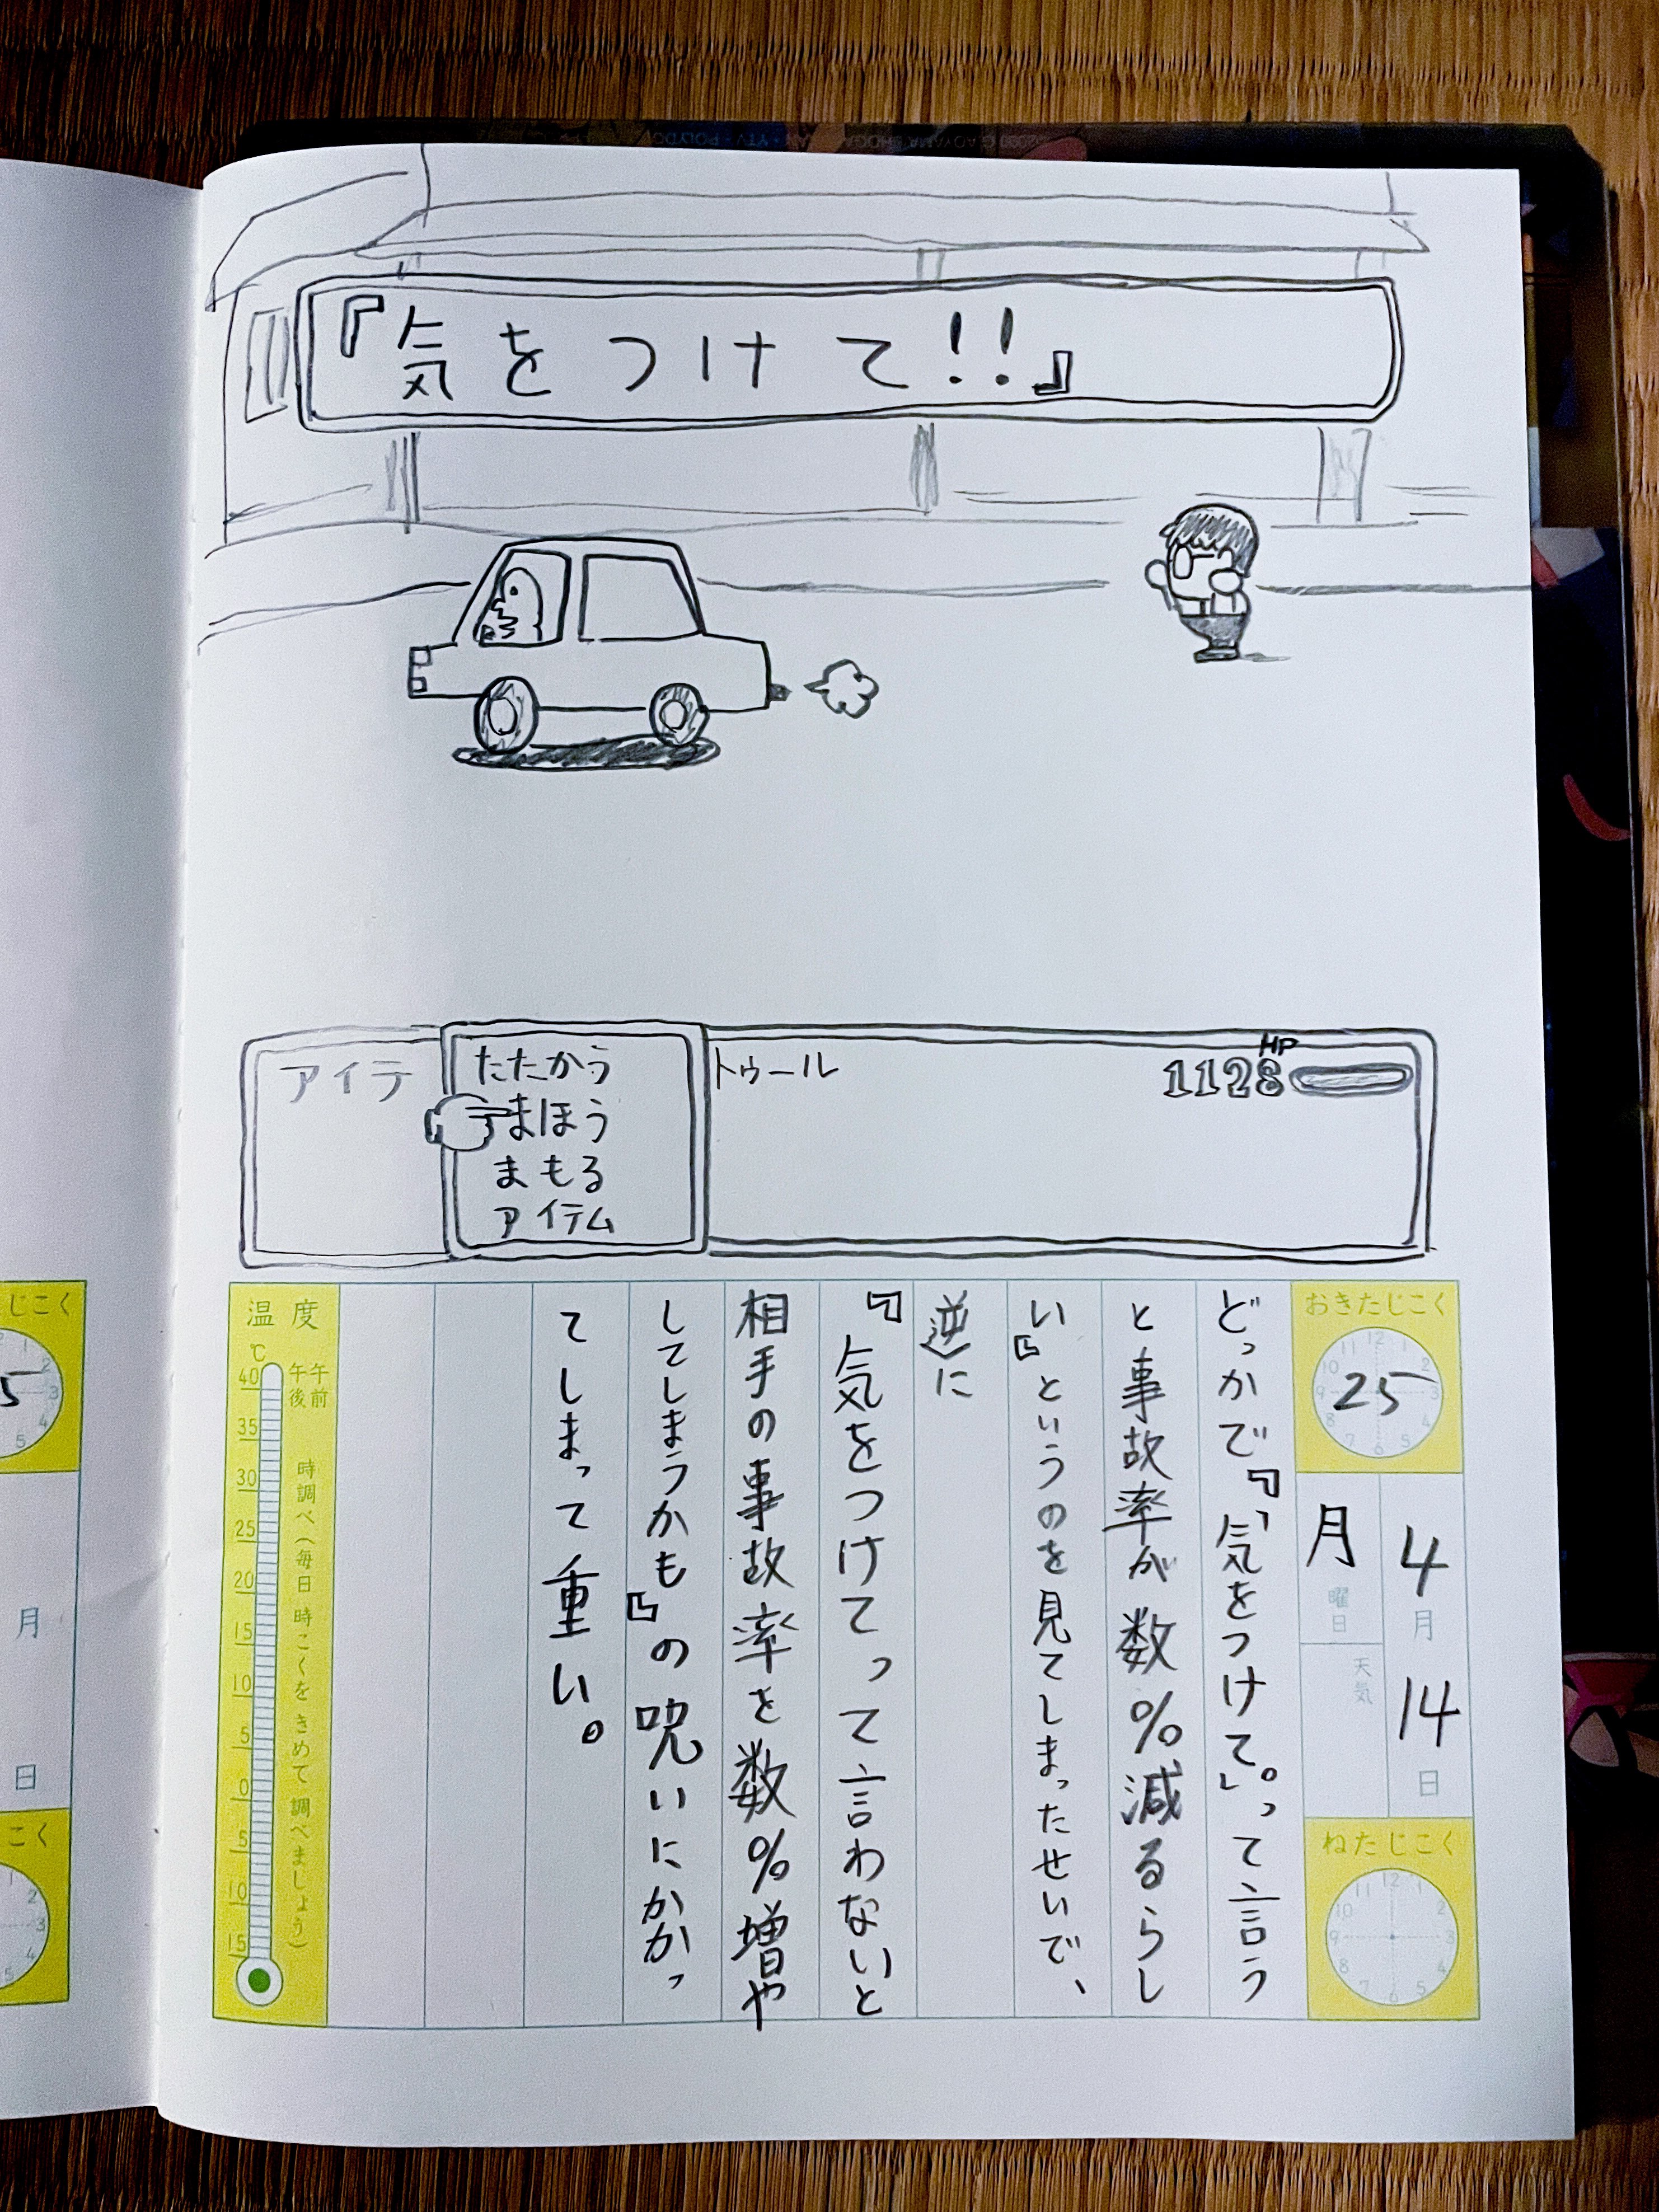 『気をつけて!!』
アイテ
たたかう
まほう
まもる
アイテム
トゥール
HP
1128
おきたじこく
25
4月14日
月曜日
天気
ねたじこく
どっかで『「気をつけて。」って言う
と事故率が数%減るらし
い』というのを見てしまったせいで、
逆に
『気をつけてって言わないと
相手の事故率を数%増や
してしまうかも』の呪いにかかっ
てしまって重い。
温度
℃
午前
午後
時調べ(毎日時こくをきめて調べましょう)
40
35
30
25
20
15
10
5
0
5
10
15
じこく
5
月
日
こく